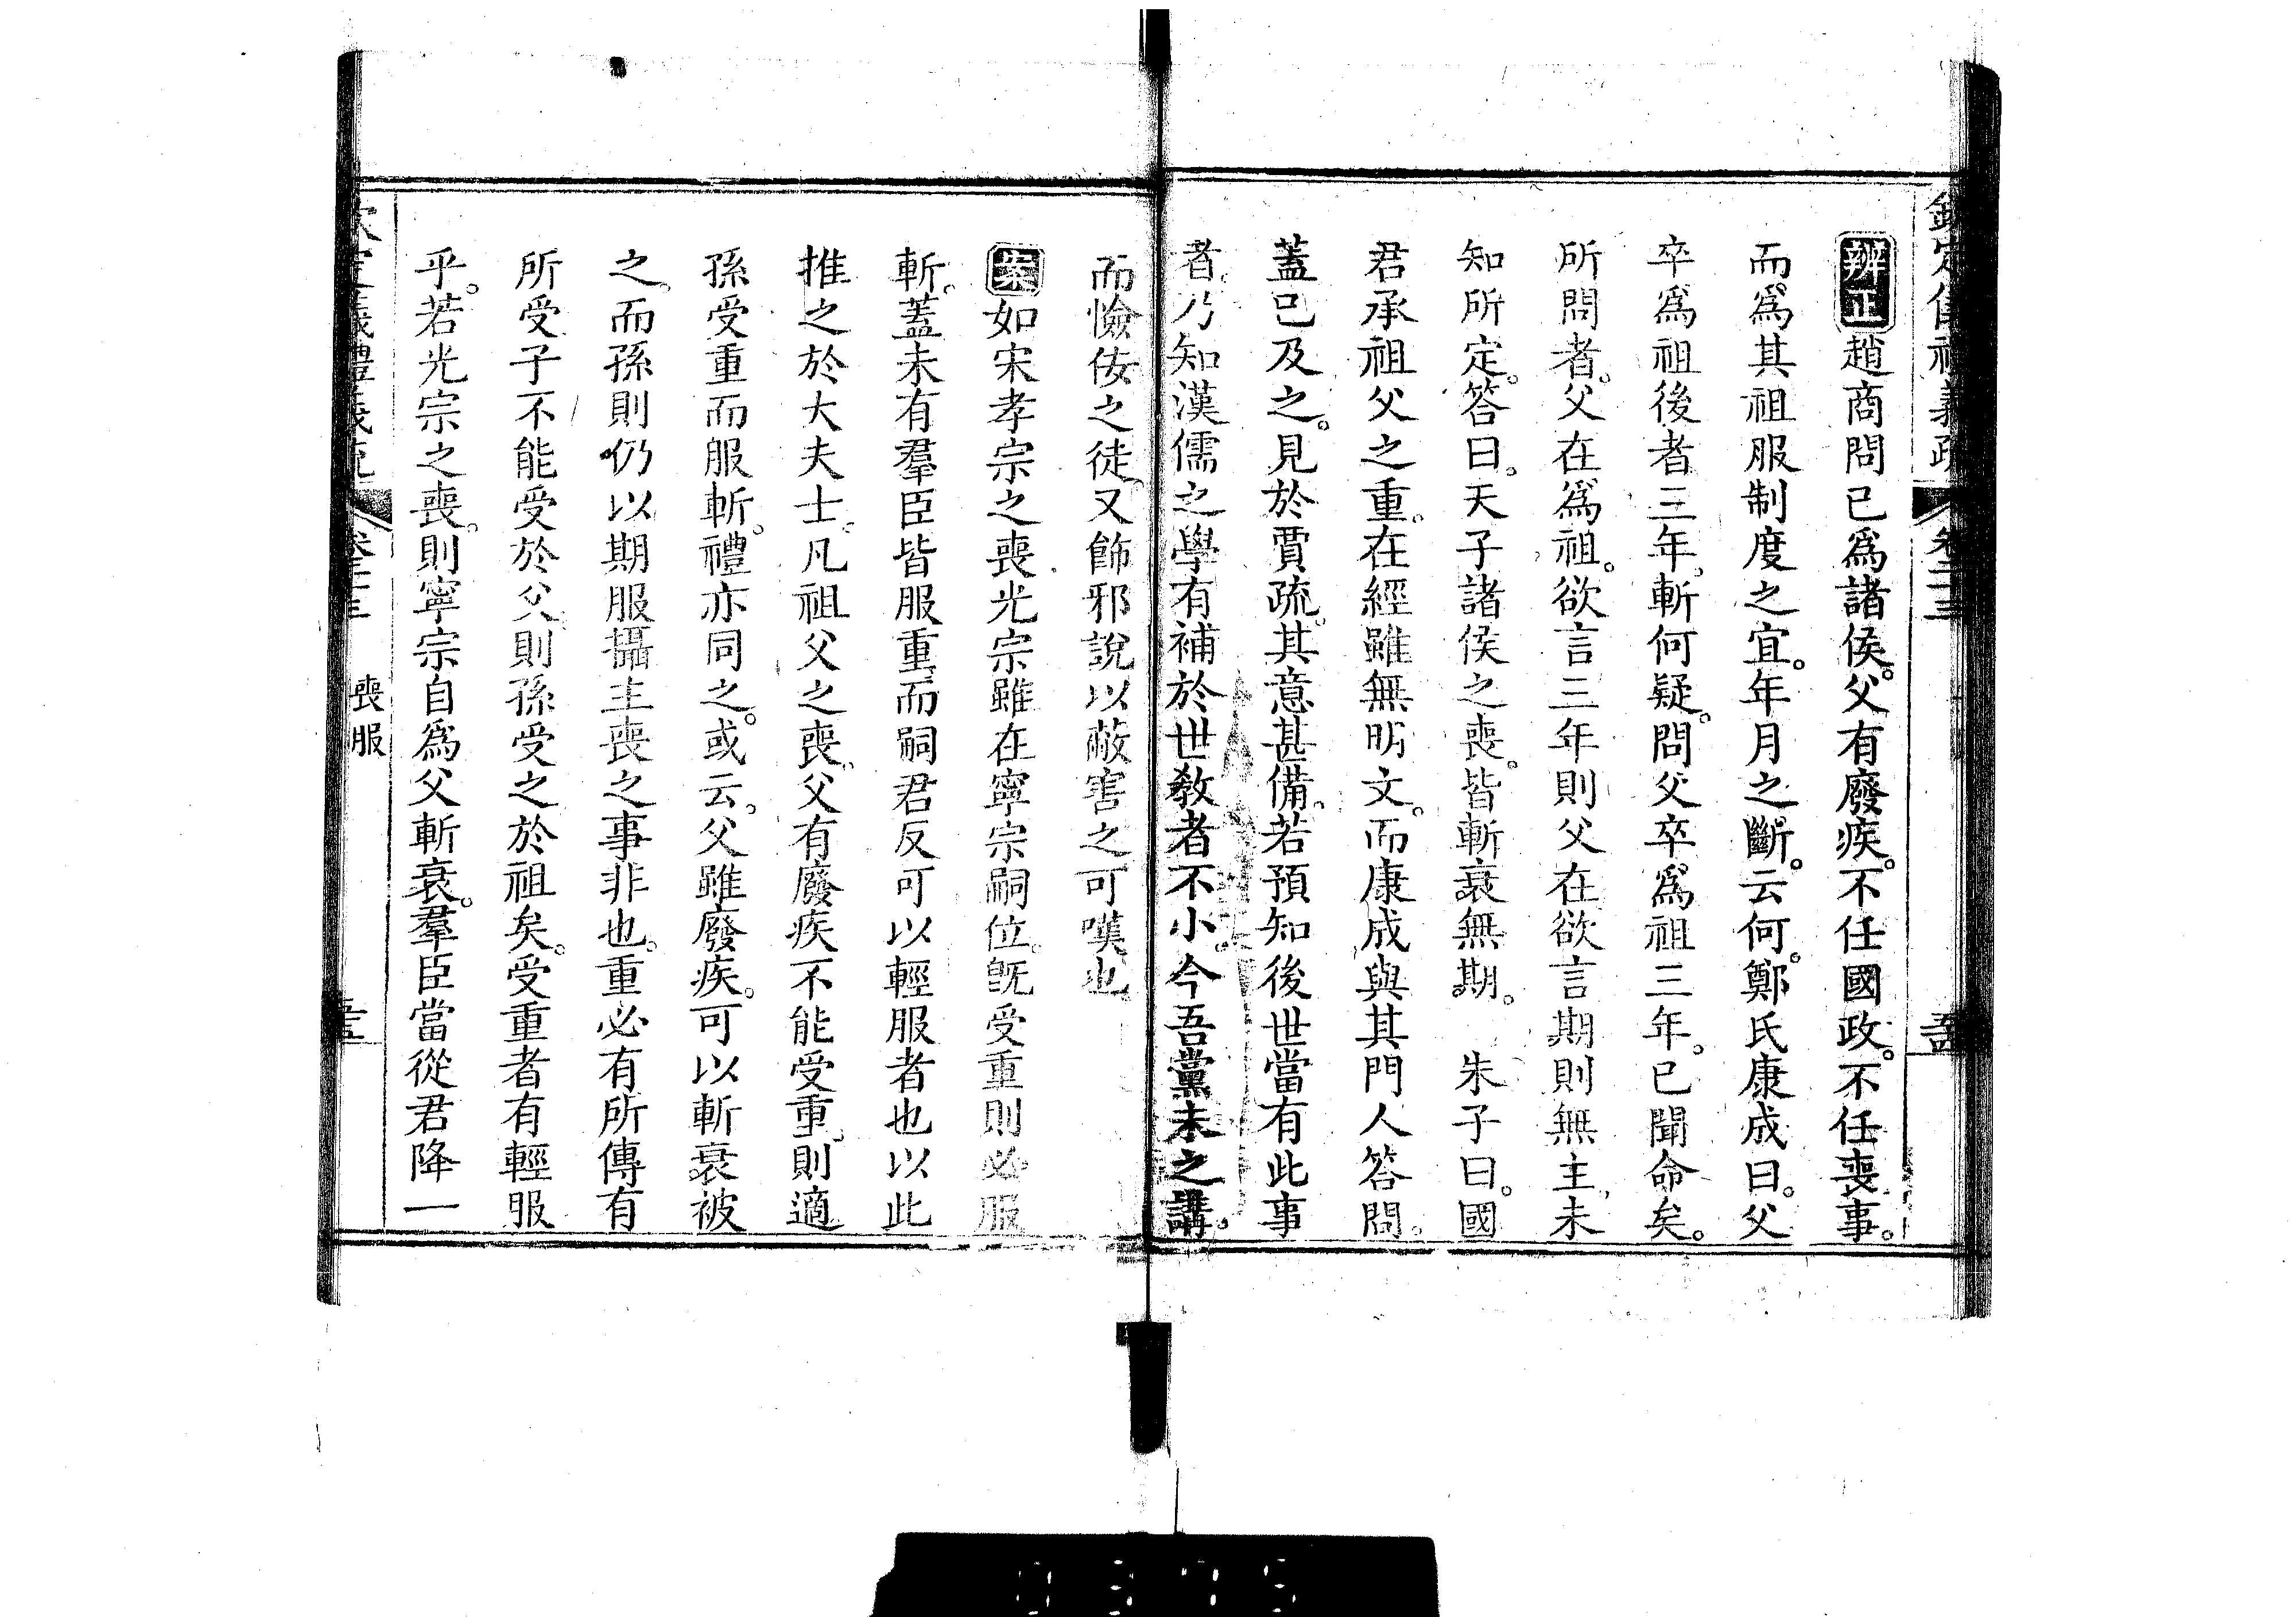 欽定儀禮義疏 卷二十三
辨正趙商問已爲諸侯。父有廢疾。不任國政。不任喪事。
而爲其祖服制度之宜。年月之斷。云何。鄭氏康成曰。父
卒爲祖後者三年。斬何疑。問父卒爲祖三年。已聞命矣。
所問者。父在爲祖。欲言三年則父在欲言期則無主未
知所定。答曰。天子諸侯之喪。皆斬衰無期。 朱子曰。國
君承祖父之重。在經雖無明文。而康成與其門人答問。
蓋已及之。見於賈疏。其意甚備。若預知後世當有此事
者。乃知漢儒之學有補於世敎者不小。今吾黨未之講。
而憸佞之徒。又飾邪說以蔽害之可嘆也。
案如宋孝宗之喪光宗雖在寧宗嗣位。旣受重則必服
斬。蓋未有羣臣皆服重。而嗣君反可以輕服者也以此
推之於大夫士。凡祖父之喪。父有廢疾不能受重。則適
孫受重而服斬。禮亦同之。或云。父雖廢疾。可以斬衰被
之。而孫則仍以期服攝主喪之事非也。重必有所傳有
所受子不能受於父。則孫受之於祖矣。受重者有輕服
乎。若光宗之喪。則寧宗自爲父斬衰。羣臣當從君降一
欽定義禮義疏 卷二十三 喪服